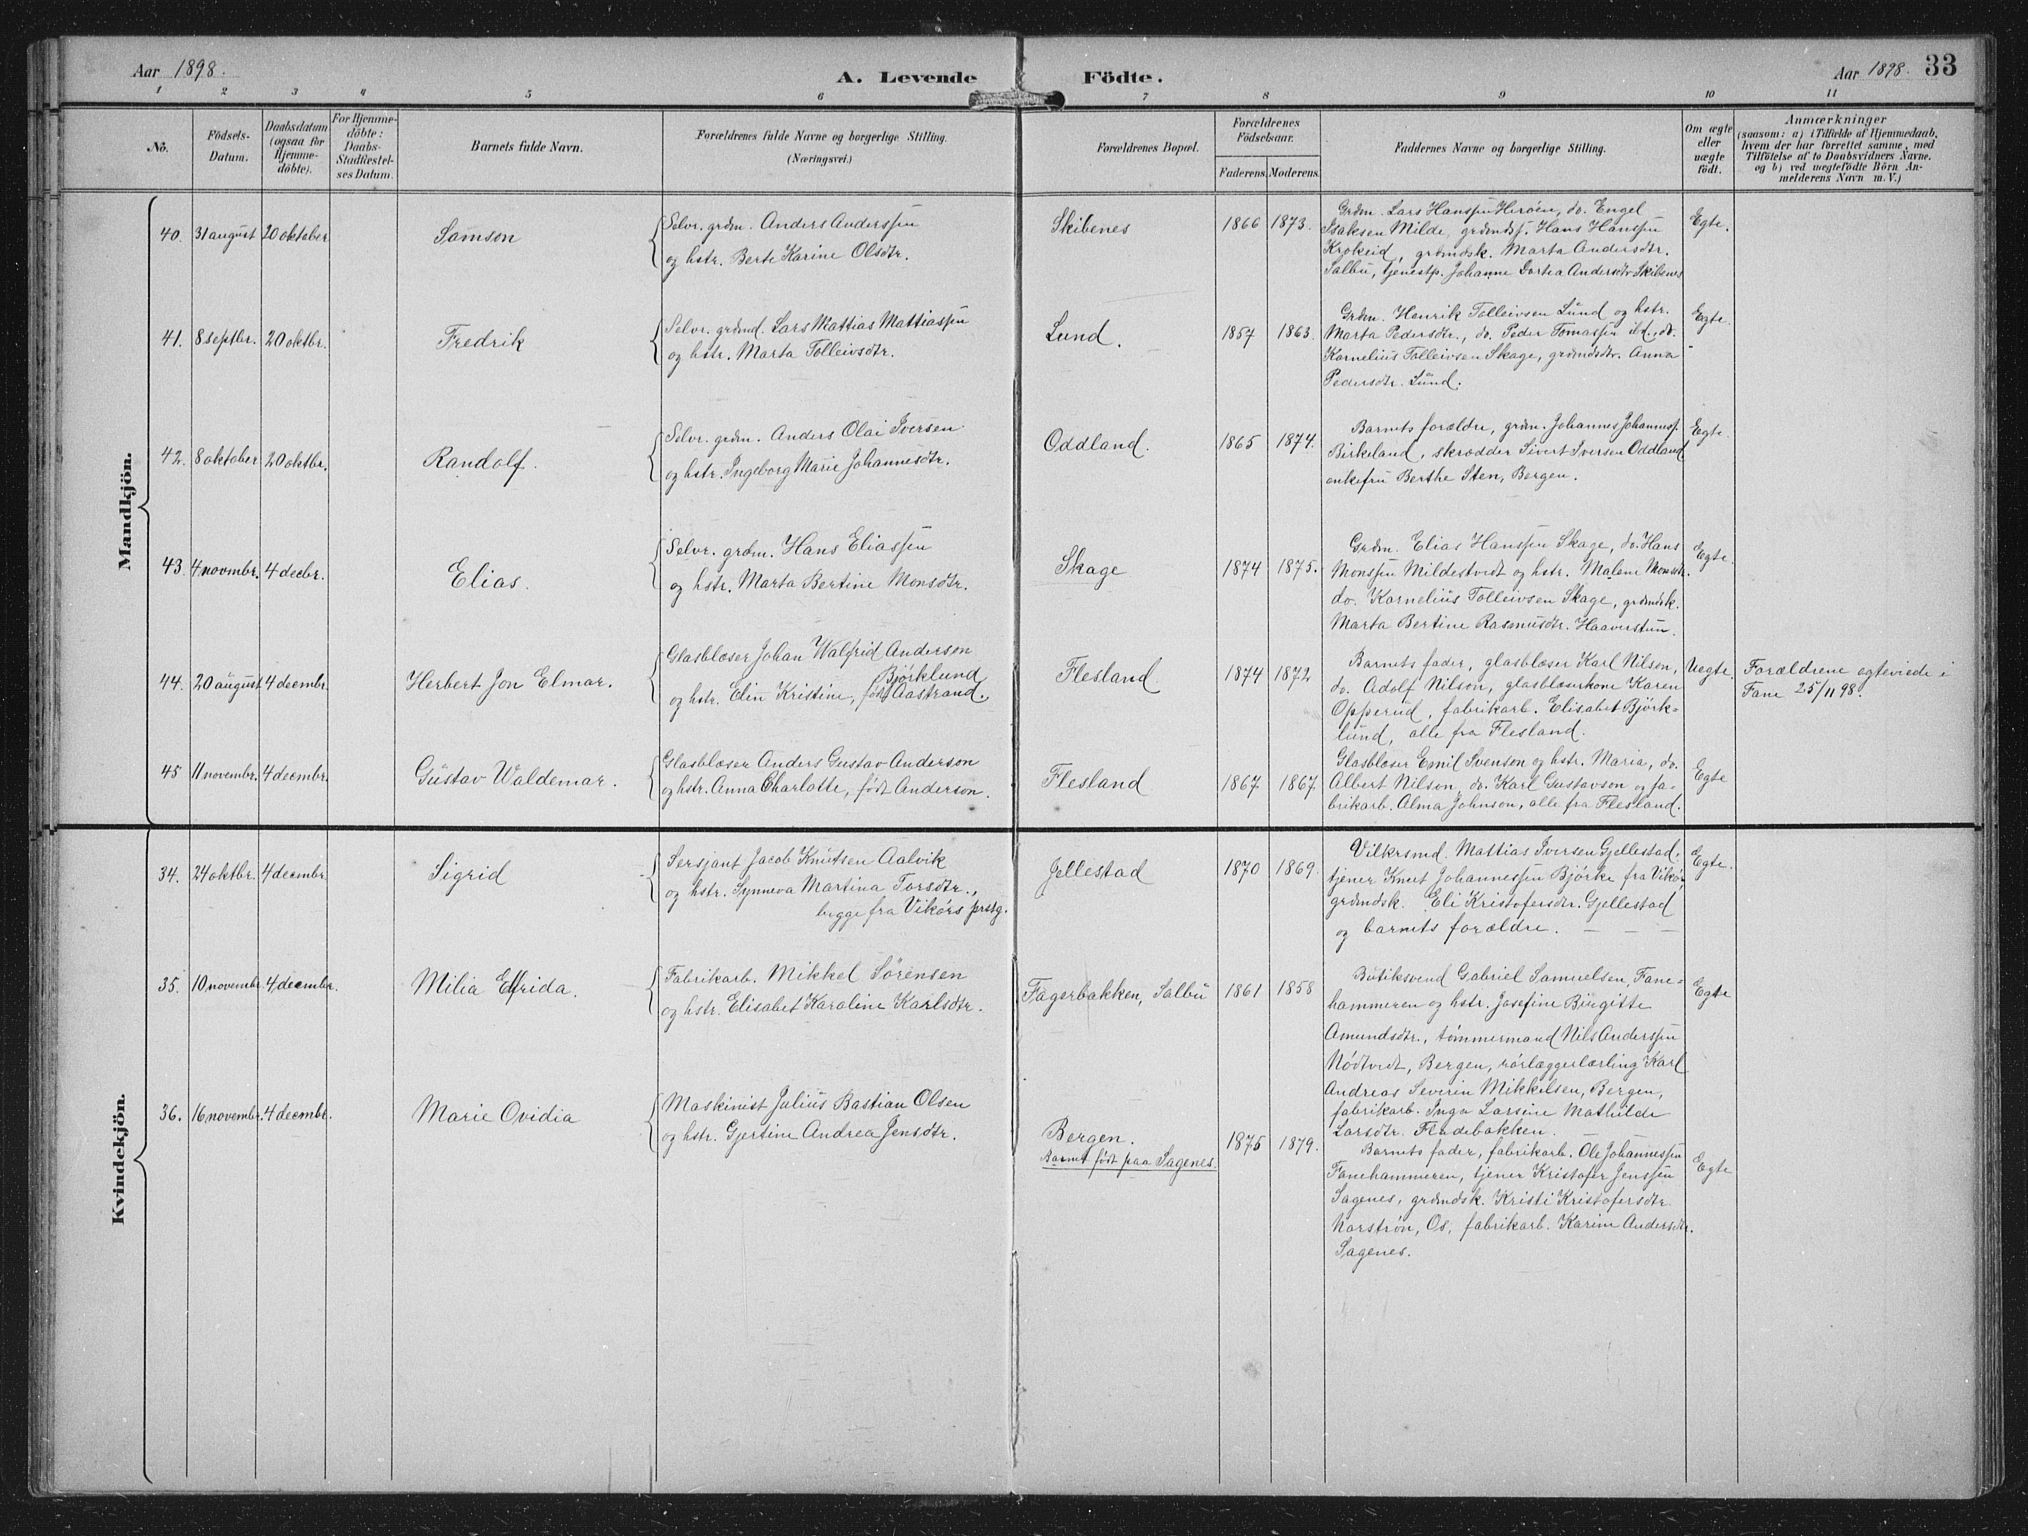 Aar 1898.
A. Levende Födte.
Aar 1898. 33
1 2 3 4 5 6 7 8 9 10 11
No.
Födsels-
Datum.
Daabsdatum
(ogsaa för
Hjemme-
döbte).
For Hjemme-
döbte:
Daabs-
Stadfæstel-
ses Datum.
Barnets fulde Navn.
Forældrenes fulde Navne og borgerlige Stilling.
(Næringsvei.)
Forældrenes Bopæl.
Forældrenes
Födselsaar.
Faderens. Moderens.
Faddernes Navne og borgerlige Stilling.
Om ægte
eller
uægte
födt.
Anmærkninger
(saasom: a) i Tilfælde af Hjemmedaab,
hvem der har forrettet samme, med
Tilföielse af to Daabsvidners Navne,
og b) ved uægtefödte Börn An-
melderens Navn m. V.)
Mandkjön.
40. 31 august 20 oktober Samson
Selvr. grdm. Anders Anderssen
og hstr. Berte Karine Olsdtr.
Skibenes 1866 1873.
Grdm. Lars Hanssen Herøen, do. Engel
Isaksen Milde, grdmdsf. Hans Hanssen
Krokeid, grdmdsk. Marta Andersdtr.
Salbu, tjenestp. Johanne Dortea Andersdtr Skibenes
Egte.
41. 8 septbr. 20 oktbr. Fredrik
Selvr. grdmd. Lars Mattias Mattiassen
og hstr. Marta Tolleivsdtr.
Lund. 1857 1863.
Grdm. Henrik Tolleivsen Lund og hstr.
Marta Pedersdtr., do. Peder Tomassen ibd., do.
Kornelius Tolleivsen Skage, grdmdsdtr. Anna
Pedersdtr. Lund.
Egte
42. 8 oktober 20 oktbr. Randolf.
Selvr. grdm. Anders Olai Iversen
og hstr. Ingeborg Marie Johannesdtr.
Oddland. 1865 1874.
Barnets forældre, grdm. Johannes Johannessen
Birkeland, skrædder Sivert Iversen Oddland
enkefru Berthe Sten, Bergen.
Egte
43. 4 novmbr. 4 decbr. Elias.
Selvr. grdm. Hans Eliassen
og hstr. Marta Bertine Monsdtr.
Skage 1874 1875.
Grdm. Elias Hanssen Skage, do. Hans
Monssen Mildestvedt og hstr. Malene Monsdtr.
do. Kornelius Tolleivsen Skage, grdmdsk.
Marta Bertine Rasmusdtr. Haaverstun.
Egte
44. 20 august 4 decmbr. Herbert Jon Elmar.
Glasblæser Johan Walfrid Anderson
Björklund
og hstr. Elin Kristine, født Aastrand.
Flesland. 1874 1872
Barnets fader, glasblæser Karl Nilson,
do. Adolf Nilson, glasblæserkone Karen
Opperud, fabrikarb. Elisabet Björk-
lund, alle fra Flesland.
Uegte
Forældrene egteviede i
Fane 25/11 98.
45 11 novembr. 4 decmbr. Gustav Waldemar.
Glasblæser Anders Gustav Anderson
og hstr. Anna Charlotte, født Anderson.
Flesland 1867 1867
Glasblæser Emil Svenson og hstr. Maria, do.
Albert Nilson, do. Karl Gustavson og fa-
brikarb. Alma Johnson, alle fra Flesland.
Egte
Kvindekjön.
34. 24 oktbr. 4 decmbr. Sigrid
Sersjant Jacob Knutsen Aalvik
og hstr. Synneva Martina Torsdtr.,
begge fra Vikørs prstg.
Jellestad 1870 1869.
Vilkrsmd. Mattias Iversen Gjellestad,
tjener Knut Johannessen Björke fra Vikør
grdmdsk. Eli Kristofersdtr. Gjellestad
og barnets forældre.
Egte.
35. 10 novembr. 4 decmbr. Milia Elfrida.
Fabrikarb. Mikkel Sørensen
og hstr. Elisabet Karoline Karlsdtr.
Fagerbakken, Salbu 1861 1858
Butiksvend Gabriel Samuelsen Fane-
hammeren og hstr. Josefine Birgitte
Amundsdtr., tømmermand Nils Anderssen
Nødtvedt, Bergen, rørlæggerlærling Karl
Andreas Severin Mikkelsen, Bergen,
fabrikarb. Inga Larsine Mathilde
Larsdtr. Fladebakken.
Egte
36. 16 novembr. 4 decembr. Marie Ovidia
Maskinist Julius Bastian Olsen
og hstr. Gjertine Andrea Jensdtr.
Bergen.
Barnet født paa Sagenes.
1875 1879.
Barnets fader, fabrikarb. Ole Johannessen
Fanehammeren, tjener Kristofer Jenssen
Sagenes, grdmdsk. Kristi Kristofersdtr
Norstrøn, Os, fabrikarb. Karine Andersdtr.
Sagenes.
Egte